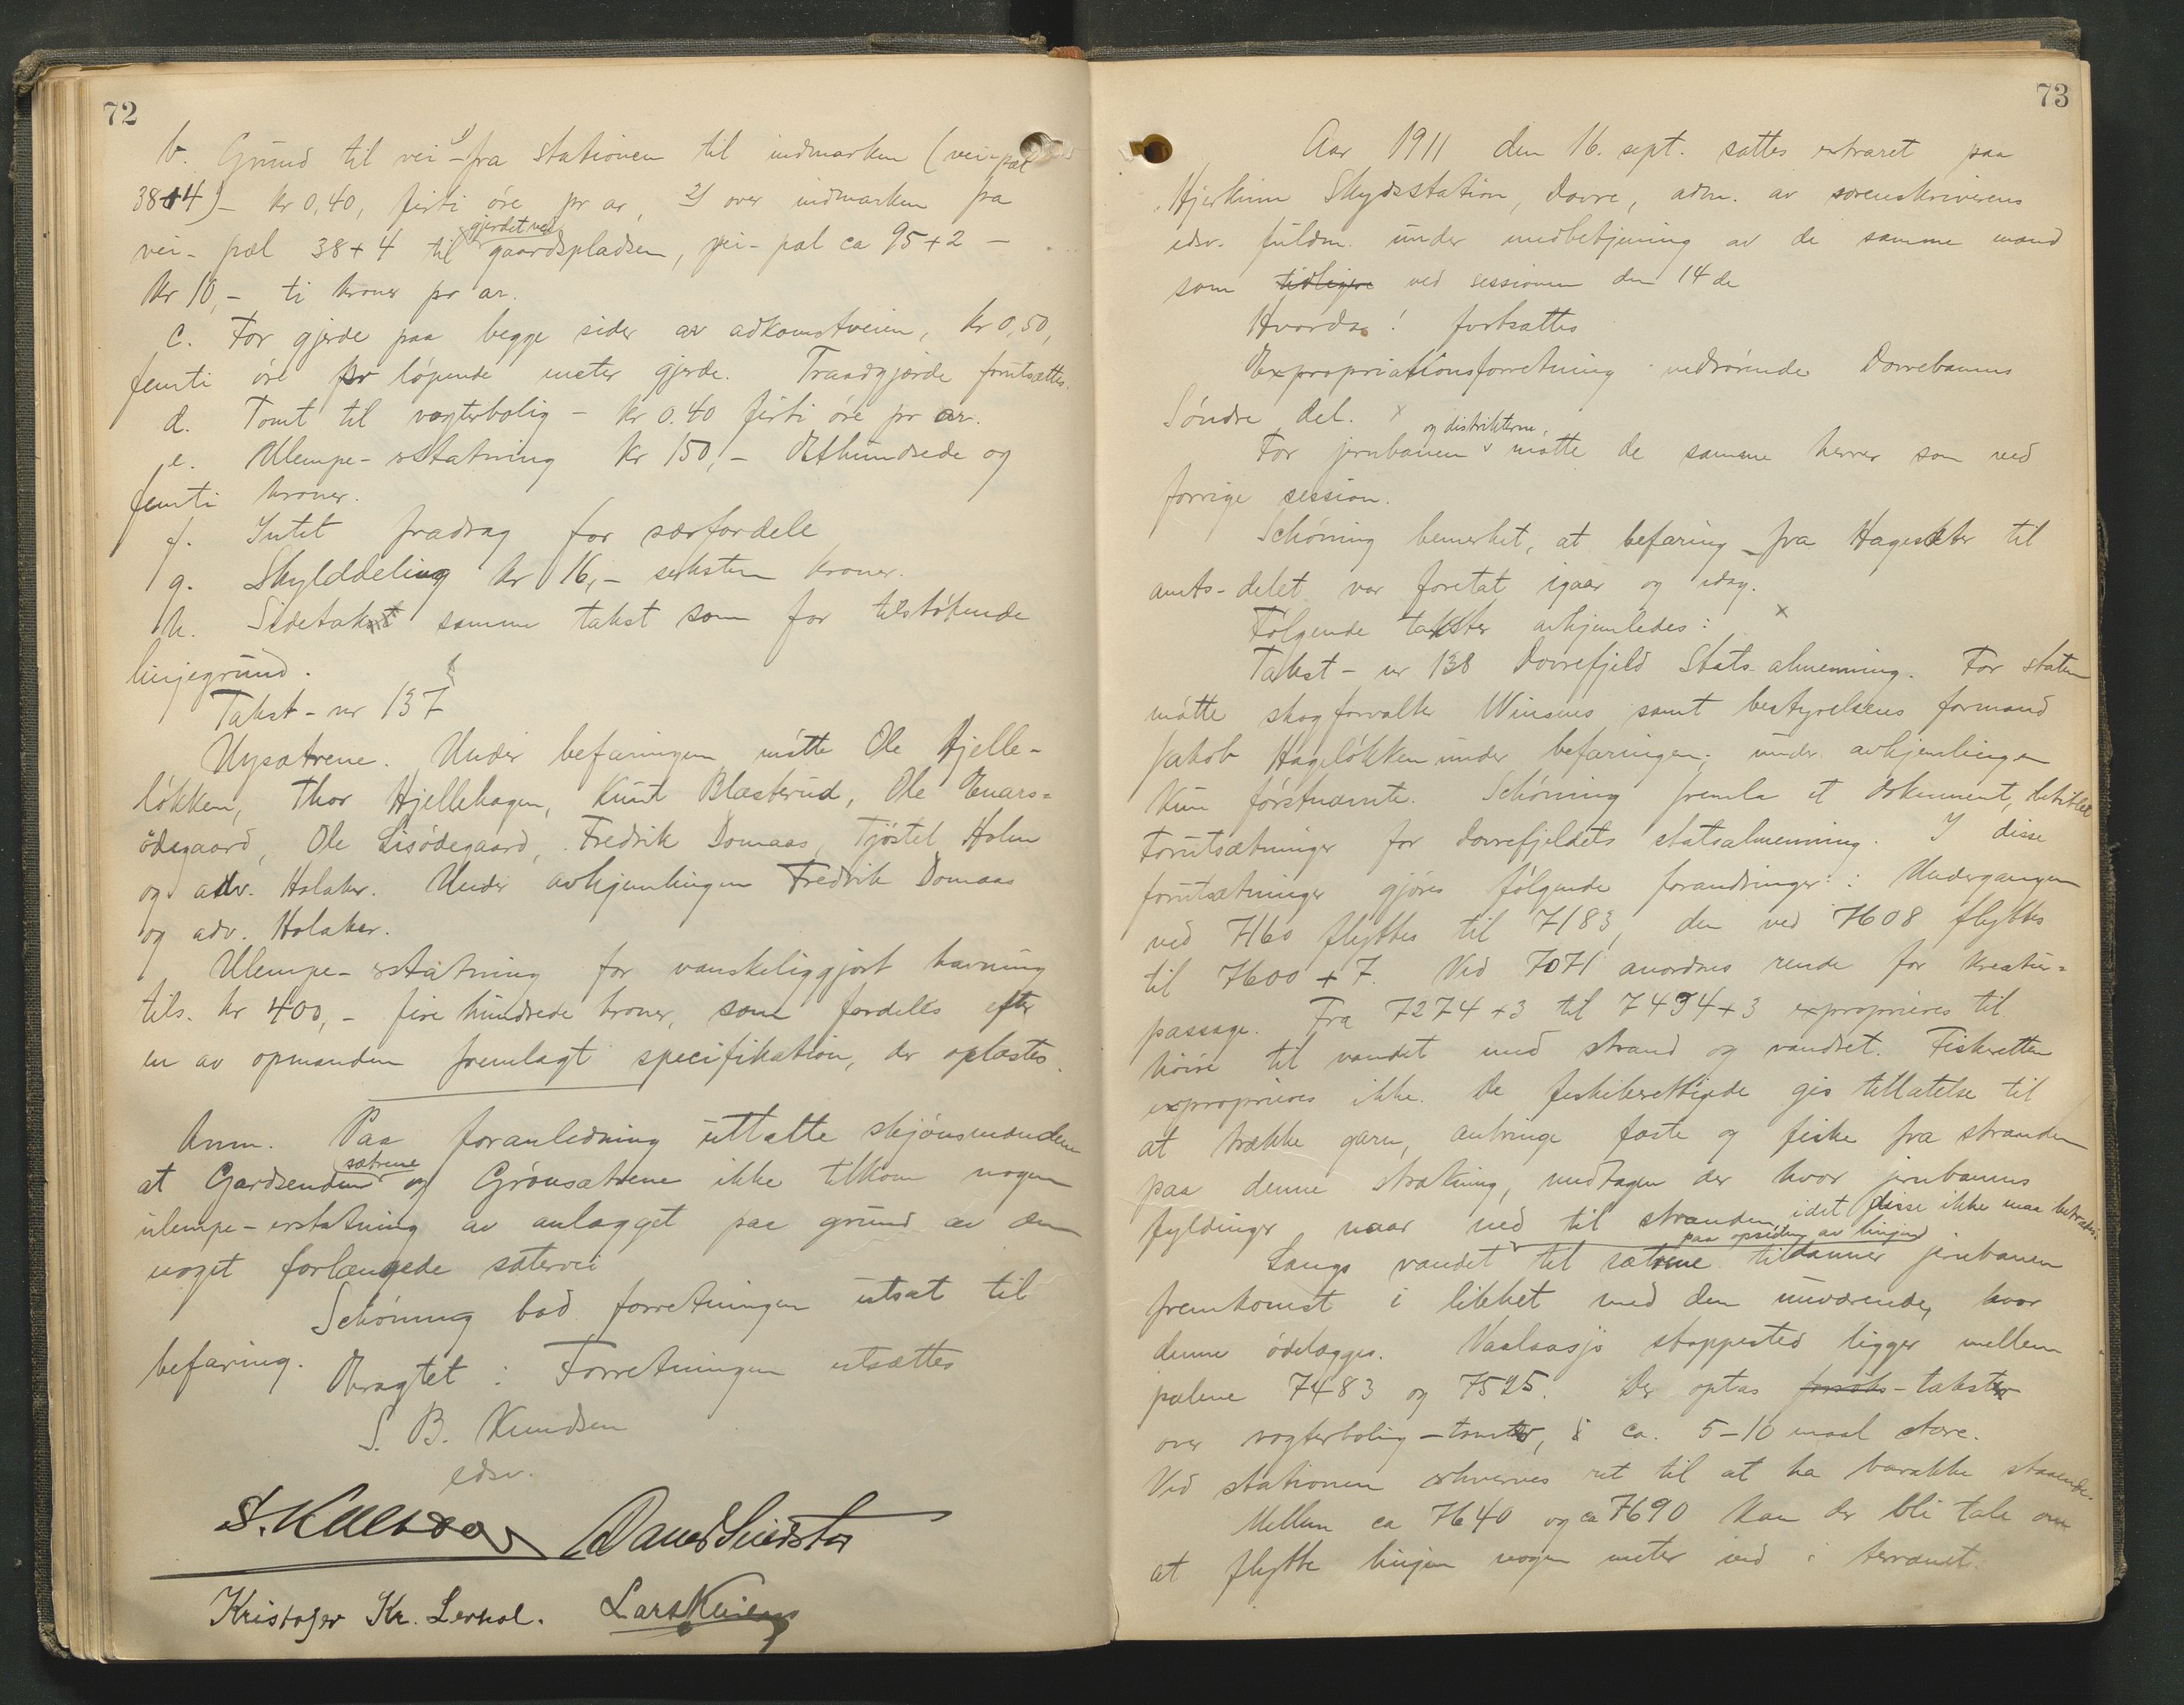 72
b. Grund til vei 1) fra stationen til indmarken (vei-pæl
38+4) - kr 0,40, firti öre pr ar, 2) over indmarken fra
vei-pæl 38+4 til gjerdet ved gaardspladsen, vei-pæl ca 95+2 -
kr 10,- ti kroner pr ar.
c. For gjerde paa begge sider av adkomstveien, kr 0,50,
femti öre pr löpende meter gjerde. Traadgjerde forutsættes.
d. Tomt til vogterbolig - kr 0.40 firti öre pr ar.
e. Ulempe-erstatning kr 150,- Ethundrede og
femti kroner.
f. Intet fradrag for særfordele
g. Skylddeling kr 16,- seksten kroner.
h. Sidetakst samme takst som for tilstökende
linjegrund.
Takst-nr 137
Nysætrene. Under befaringen mötte Ole Hjelle-
lökken, Thor Hjellehagen, Knut Blæsterud, Ole Einars-
ödegaard, Ole Lisödegaard, Fredrik Domaas, Tjöstel Holm
og adv. Holaker. Under avhjemlingen Fredrik Domaas
og adv. Holaker.
Ulempe-erstatning for vanskeliggjort havning
tils. kr 400,- fire hundrede kroner, som fordeles efter
en av opmanden fremlagt specifikation, der oplæstes.
Anm. Paa foranledning uttalte skjönsmændene
at Gardsenden sætrene og Grönsætrene ikke tilkom nogen
ulempe-erstatning av anlægget paa grund av den
noget forlængede sætervei
Schöning bad forretningen utsat til
befaring.
Eragtet: Forretningen utsættes
S. B. Knudsen
edsv.
Kristofer Kr. Lerhol.
73
Aar 1911 den 16. sept. sattes extraret paa
Hjerkinn Skydsstation, Dovre, adm. av sorenskriverens
edsv. fuldm. under medbetjening av de samme mænd
som tidligere ved sessionen den 14 de
Hvorda! fortsattes
Expropriationsforretning vedrörende Dovrebanens
Söndre del.
For jernbanen og distrikterne, mötte de samme herrer som ved
forrige session.
Schöning bemerket, at befaring fra Hagesæter til
amts-delet var foretat igaar og idag.
Fölgende takster avhjemledes:
Takst-nr 138 Dovrefjeld Stats-almenning. For staten
mötte skogforvalter Winsnes samt bestyrelsens formand
Jakob Hagelökken under befaringen; under avhjemlingen
kun förstnævnte. Schöning fremla et dokument, betitlet
Forutsætninger for Dovrefjeldets statsalmenning. I disse
forutsætninger gjöres fölgende forandringer: Undergangen
ved 7160 flyttes til 7183, den ved 7608 flyttes
til 7600+7. Ved 7071 anordnes rende for kreatur-
passage. Fra 7274+3 til 7494+3 exproprieres til
höire til vandet med strand og vandret. Fiskeretten
exproprieres ikke. De fiskeberettigede gis tillatelse til
at trække garn, anbringe fæste og fiske fra stranden
paa denne strækning, undtagen der hvor jernbanens
fyldinger naar ned til stranden, idet disse ikke maa betrædes.
Langs vandet til sætrene paa opsiden av linjen tildanner jernbanen
fremkomst i likhet med den nuværende, hvor
denne ödelægges. Vaalaasjö stoppested ligger mellem
pælene 7483 og 7525. Der optas forsöks-takster
over vogterbolig-tomter, á ca. 5-10 maal store.
Ved stationen erhverves ret til at ha barakke staaende.
Mellem ca 7640 og ca 7690 kan der bli tale om
at flytte linjen nogen meter ind i terrænet.